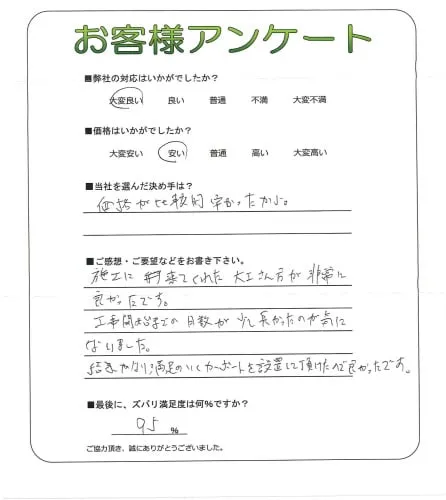 お客様アンケート
■弊社の対応はいかがでしたか?
大変良い 良い 普通 不満 大変不満
■価格はいかがでしたか?
大変安い 安い 普通 高い 大変高い
■当社を選んだ決め手は?
価格が比較的安かったから。
■ご感想・ご要望などをお書き下さい。
施工に来てくれた大工さん方が非常に
良かったです。
工事開始までの日数が少し長かったのが気に
なりました。
結果かなり満足のいくカーポートを設置して頂けたので良かったです。
■最後に、ズバリ満足度は何%ですか?
95 %
ご協力頂き、誠にありがとうございました。